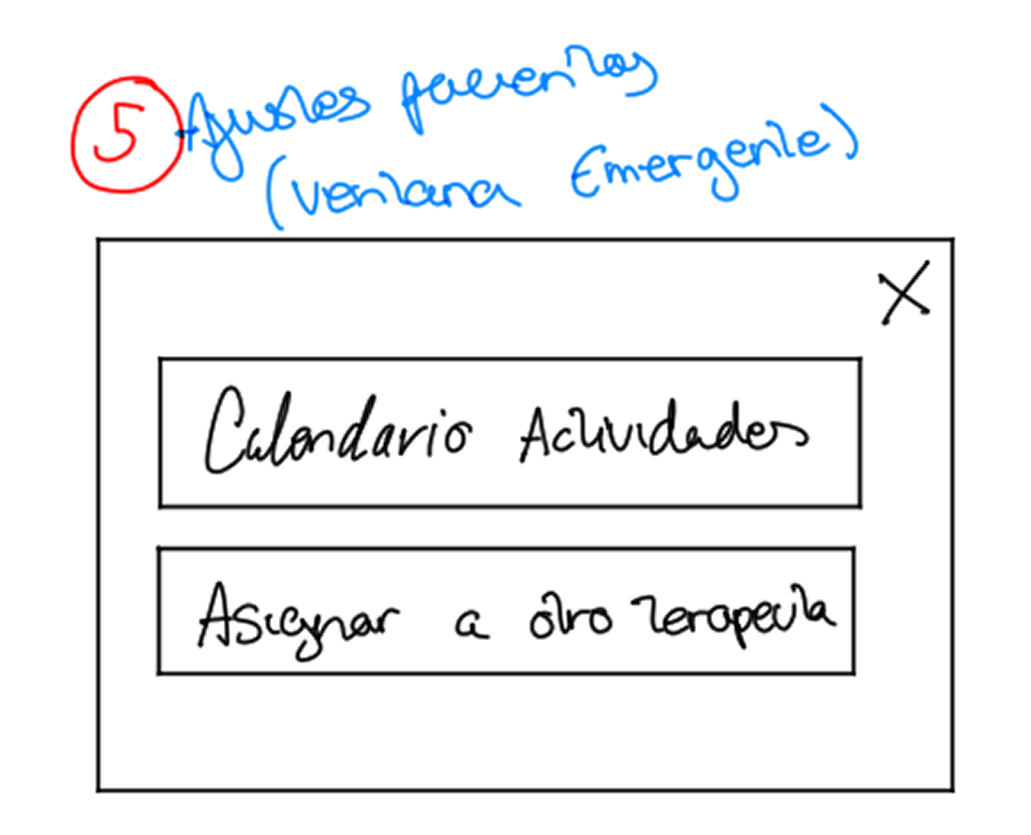 5 Ajustes pacientes
(Ventana Emergente)
X
Calendario Actividades
Asignar a otro terapeuta